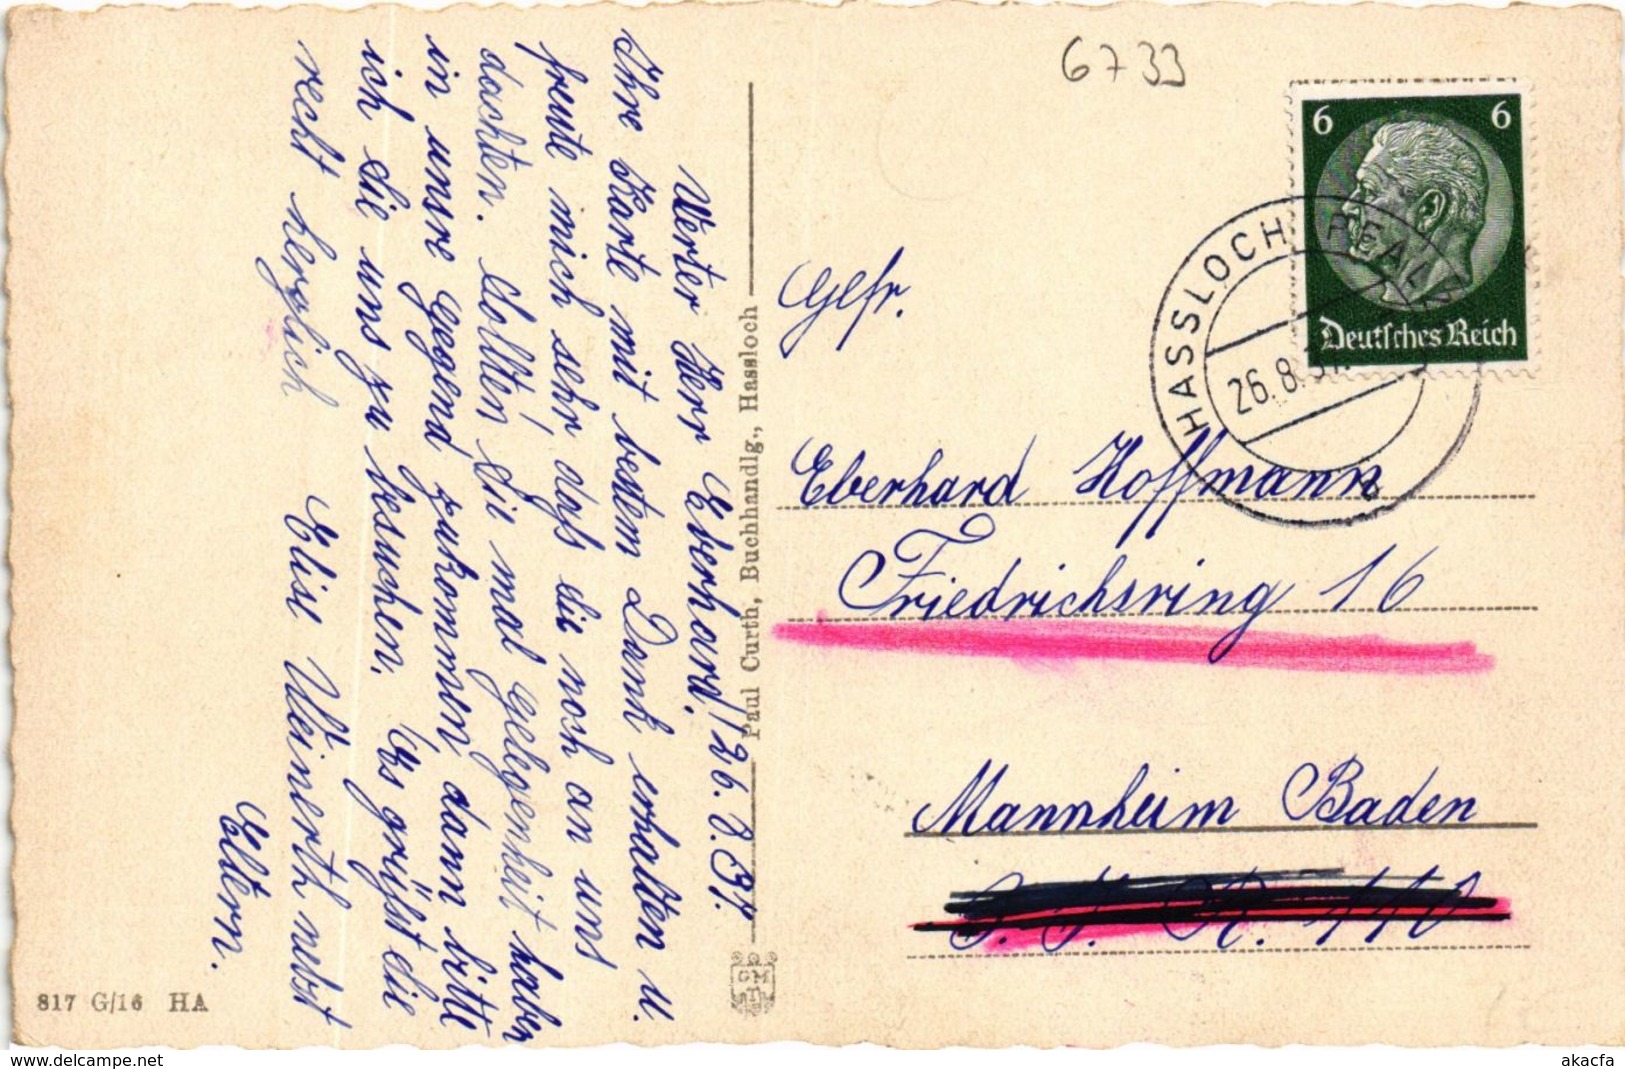 6733
6 6
Deutsches Reich
HASSLOCH (PFALZ)
26.8.37.
b
Gefr.
Eberhard Hoffmann
Friedrichsring 16
Mannheim Baden
J. R. 110
Werter Herr Eberhard! 26.8.37.
Ihre Karte mit bestem Dank erhalten u.
freute mich sehr, dass Sie noch an uns
dachten. Sollten Sie mal Gelegenheit haben
in unsre Gegend zukommen, dann bitte
ich Sie uns zu besuchen. Es grüßt Sie
recht herzlich Elise Weinerth nebst
Eltern.
Paul Curth, Buchhandlg., Hassloch
GM
817 G/16 HA
delcampe.net
akacfa